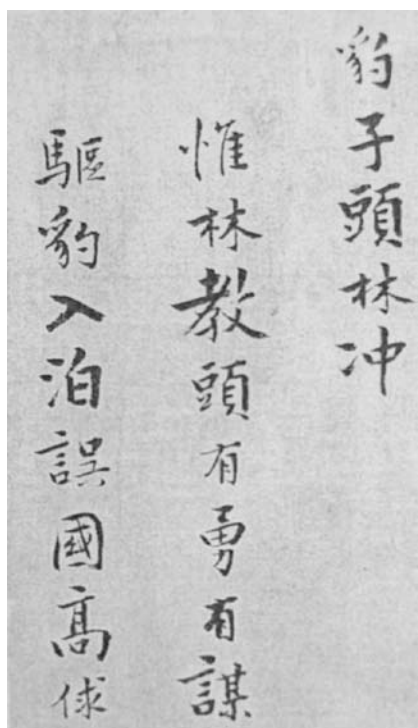 豹子頭林冲
惟林教頭有勇有謀
驅豹入泊誤國高俅